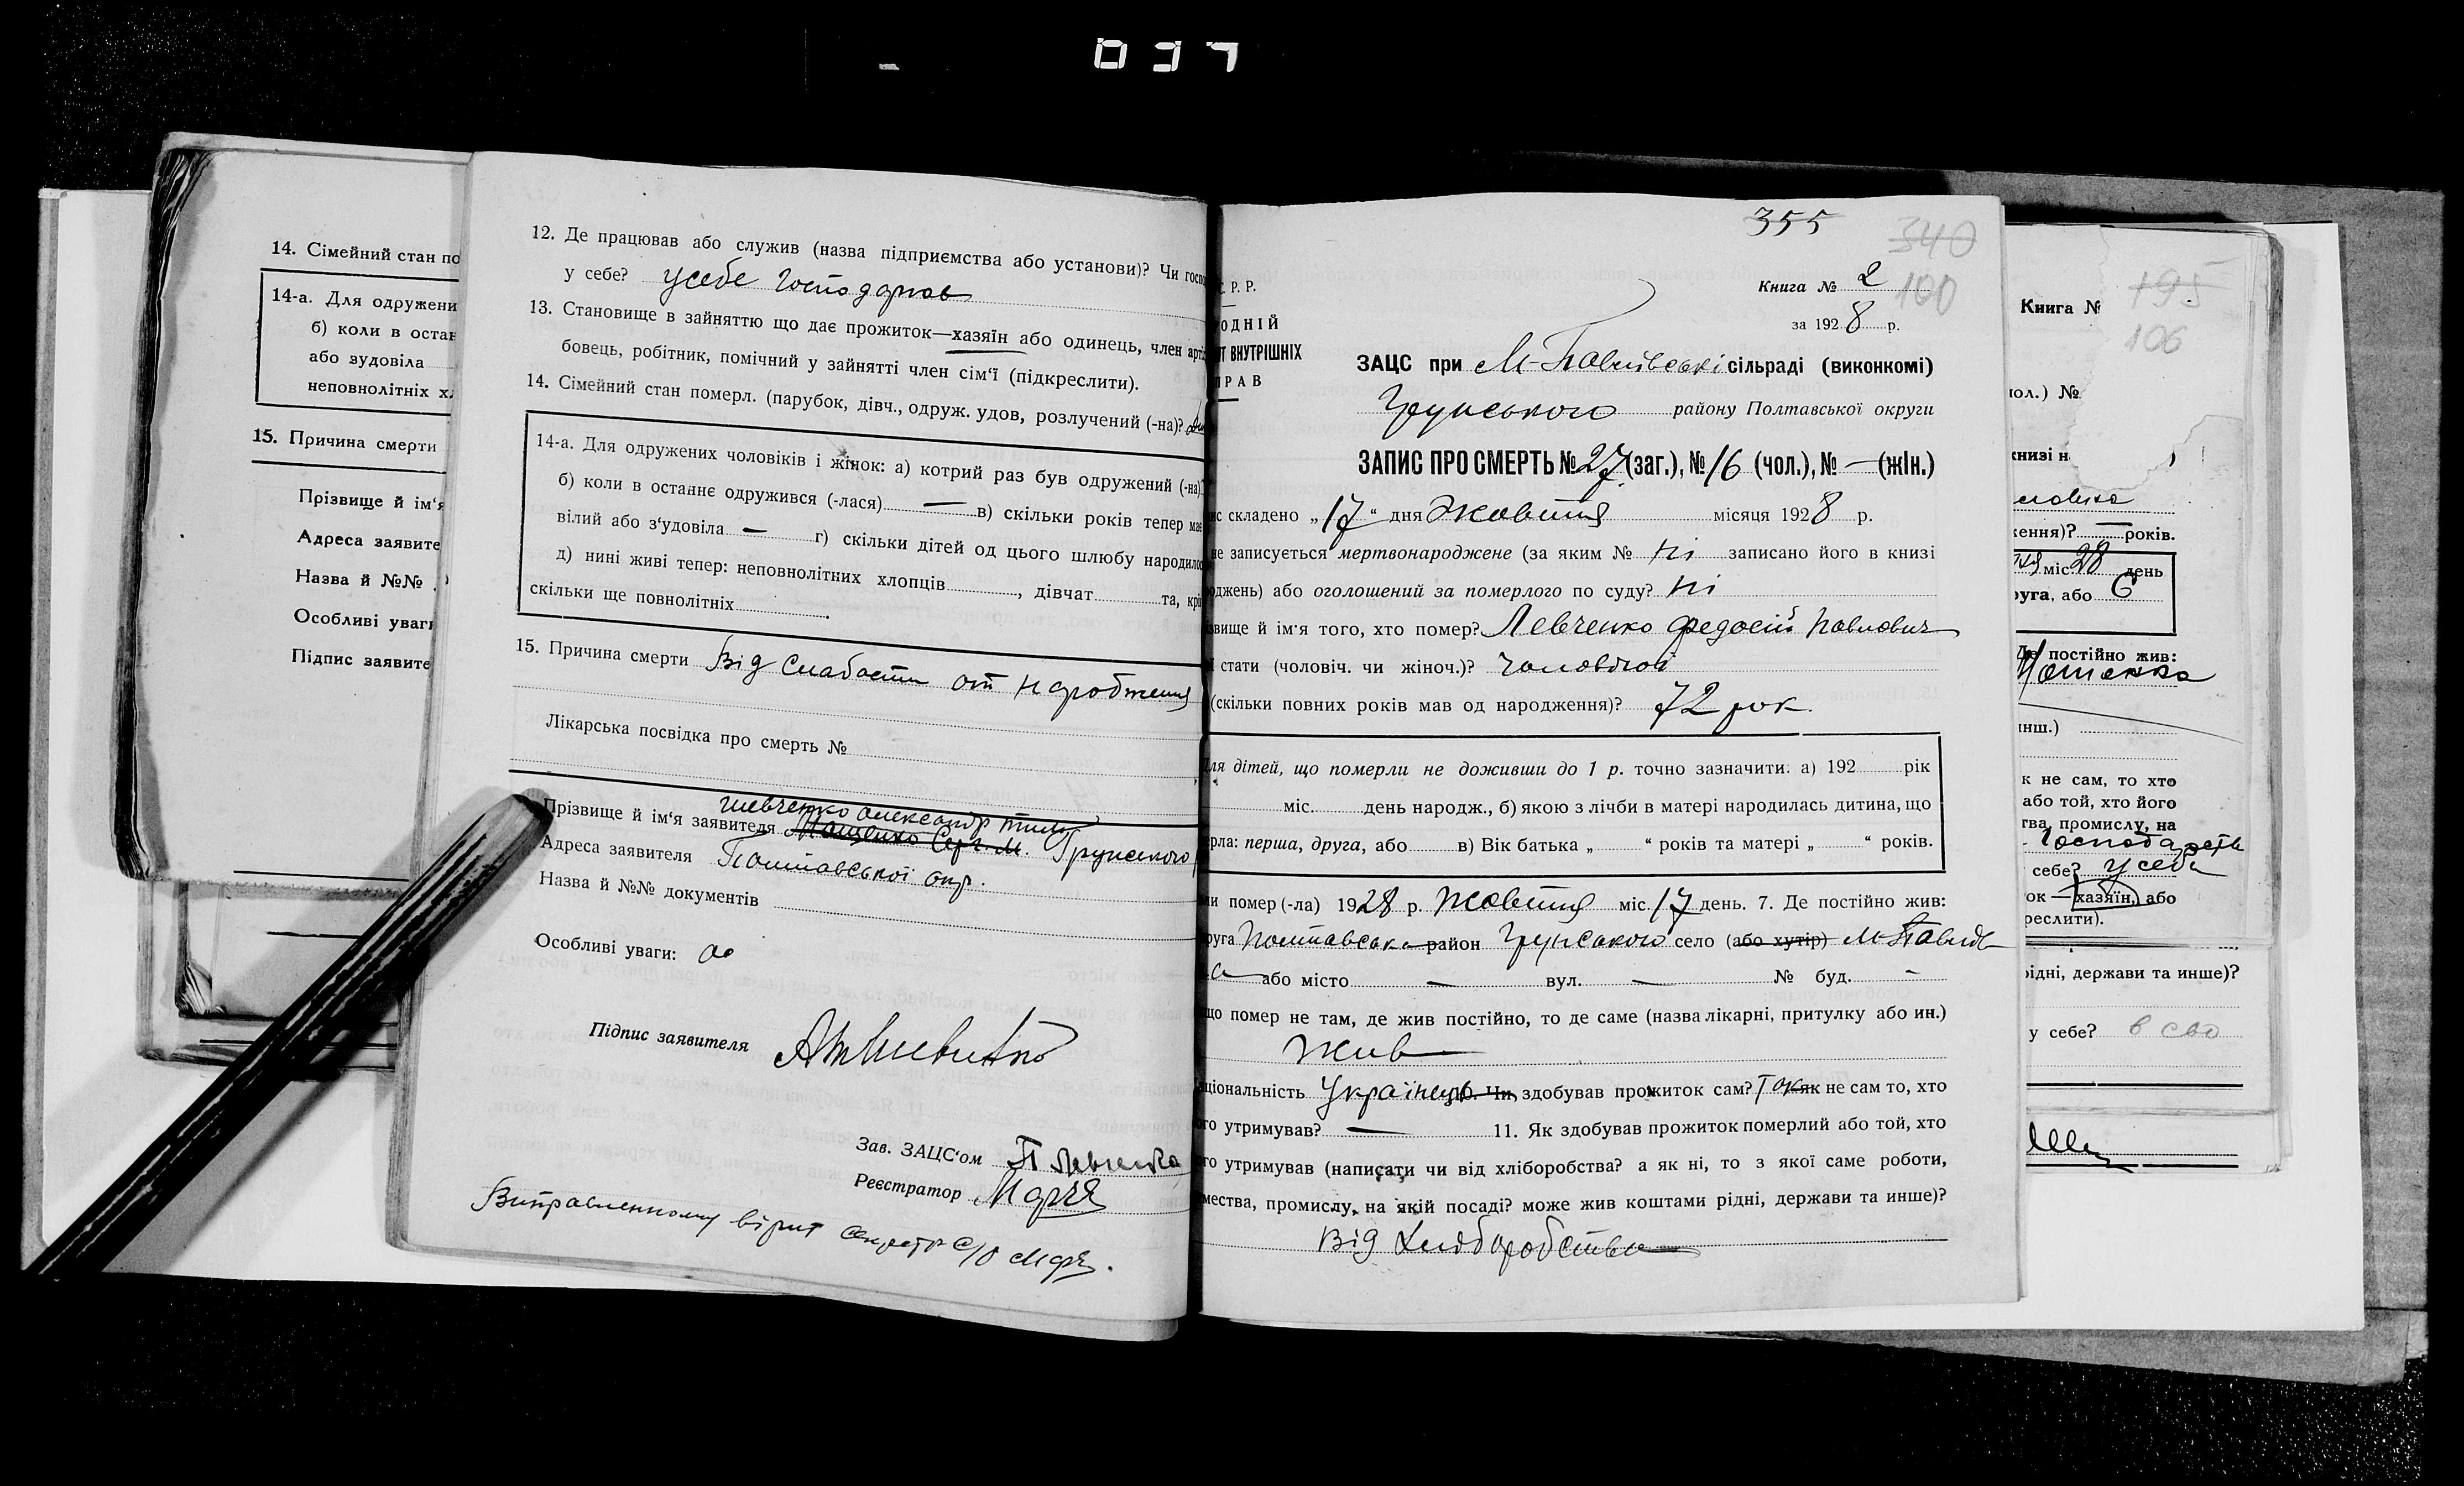 037
14. Сімейний стан по
14-а. Для одружени
б) коли в остан
або зудовіла
неповнолітніх х
15. Причина смерти
Прізвище й ім'я
Адреса заявите
Назва й №№
Особливі уваги
Підпис заявите
12. Де працював або служив (назва підприємства або установи)? Чи госпо
у себе? усебе Господарював
13. Становище в зайняттю що дає прожиток—хазяїн або одинець, член арті
бовець, робітник, помічний у зайнятті член сім'ї (підкреслити).
14. Сімейний стан померл. (парубок, дівч., одруж. удов, розлучений (-на)?
14-а. Для одружених чоловіків і жінок: а) котрий раз був одружений (-на)
б) коли в останнє одружився (-лася) — в) скільки років тепер має
вілий або з'удовіла — г) скільки дітей од цього шлюбу народилос
д) нині живі тепер: неповнолітних хлопців, дівчат та, крі
скільки ще повнолітніх
15. Причина смерти Від Слабости от народження
Лікарська посвідка про смерть №
Шевченко Олександр
Прізвище й ім'я заявителя
Адреса заявителя Полтавської окр. Грунського
Назва й №№ документів
Особливі уваги:
Підпис заявителя
Зав. ЗАЦС'ом
Реєстратор
Виправленному вірит секретр с/р
355
340
100
Книга № 2
за 1928 р.
С. Р. Р.
ОДНІЙ
Т ВНУТРІШНІХ
ПРАВ
ЗАЦС при М-Павлівські сільраді (виконкомі)
Грунського району Полтавської округи
ЗАПИС ПРО СМЕРТЬ № 27 (заг.), № 16 (чол.), № — (жін.)
ис складено „17" дня Жовтня місяця 1928 р.
не записується мертвонароджене (за яким № ні записано його в книзі
оджень) або оголошений за померлого по суду? ні
звище й ім'я того, хто помер? Левченко Федосій Павлович
ї стати (чоловіч. чи жіноч.)? чоловічої
(скільки повних років мав од народження)? 72 рок.
Для дітей, що померли не доживши до 1 р. точно зазначити: а) 192 рік
міс. день народж., б) якою з лічби в матері народилась дитина, що
ерла: перша, друга, або в) Вік батька „ " років та матері „ " років.
ли помер (-ла) 1928 р. Жовтня міс. 17 день. 7. Де постійно жив:
руга Полтавська район Грунського село (або хутір) М-Павлів
ка або місто — вул. — № буд. -
що помер не там, де жив постійно, то де саме (назва лікарні, притулку або ин.)
Жив
ціональність Українець 10. Чи здобував прожиток сам? Так як не сам то, хто
го утримував? — 11. Як здобував прожиток померлий або той, хто
го утримував (написати чи від хліборобства? а як ні, то з якої саме роботи,
мества, промислу, на якій посаді? може жив коштами рідні, держави та инше)?
Від Хліборобства
195
Книга №
106
ол.) №
книзі н
ення)? — років.
міс. 28 день
руга, або 6
Де постійно жив:
инш.)
к не сам, то хто
або той, хто його
тва, промислу, на
себе? у себе
ок — хазяїн, або
реслити).
рідні, держави та инше)?
у себе? в сво